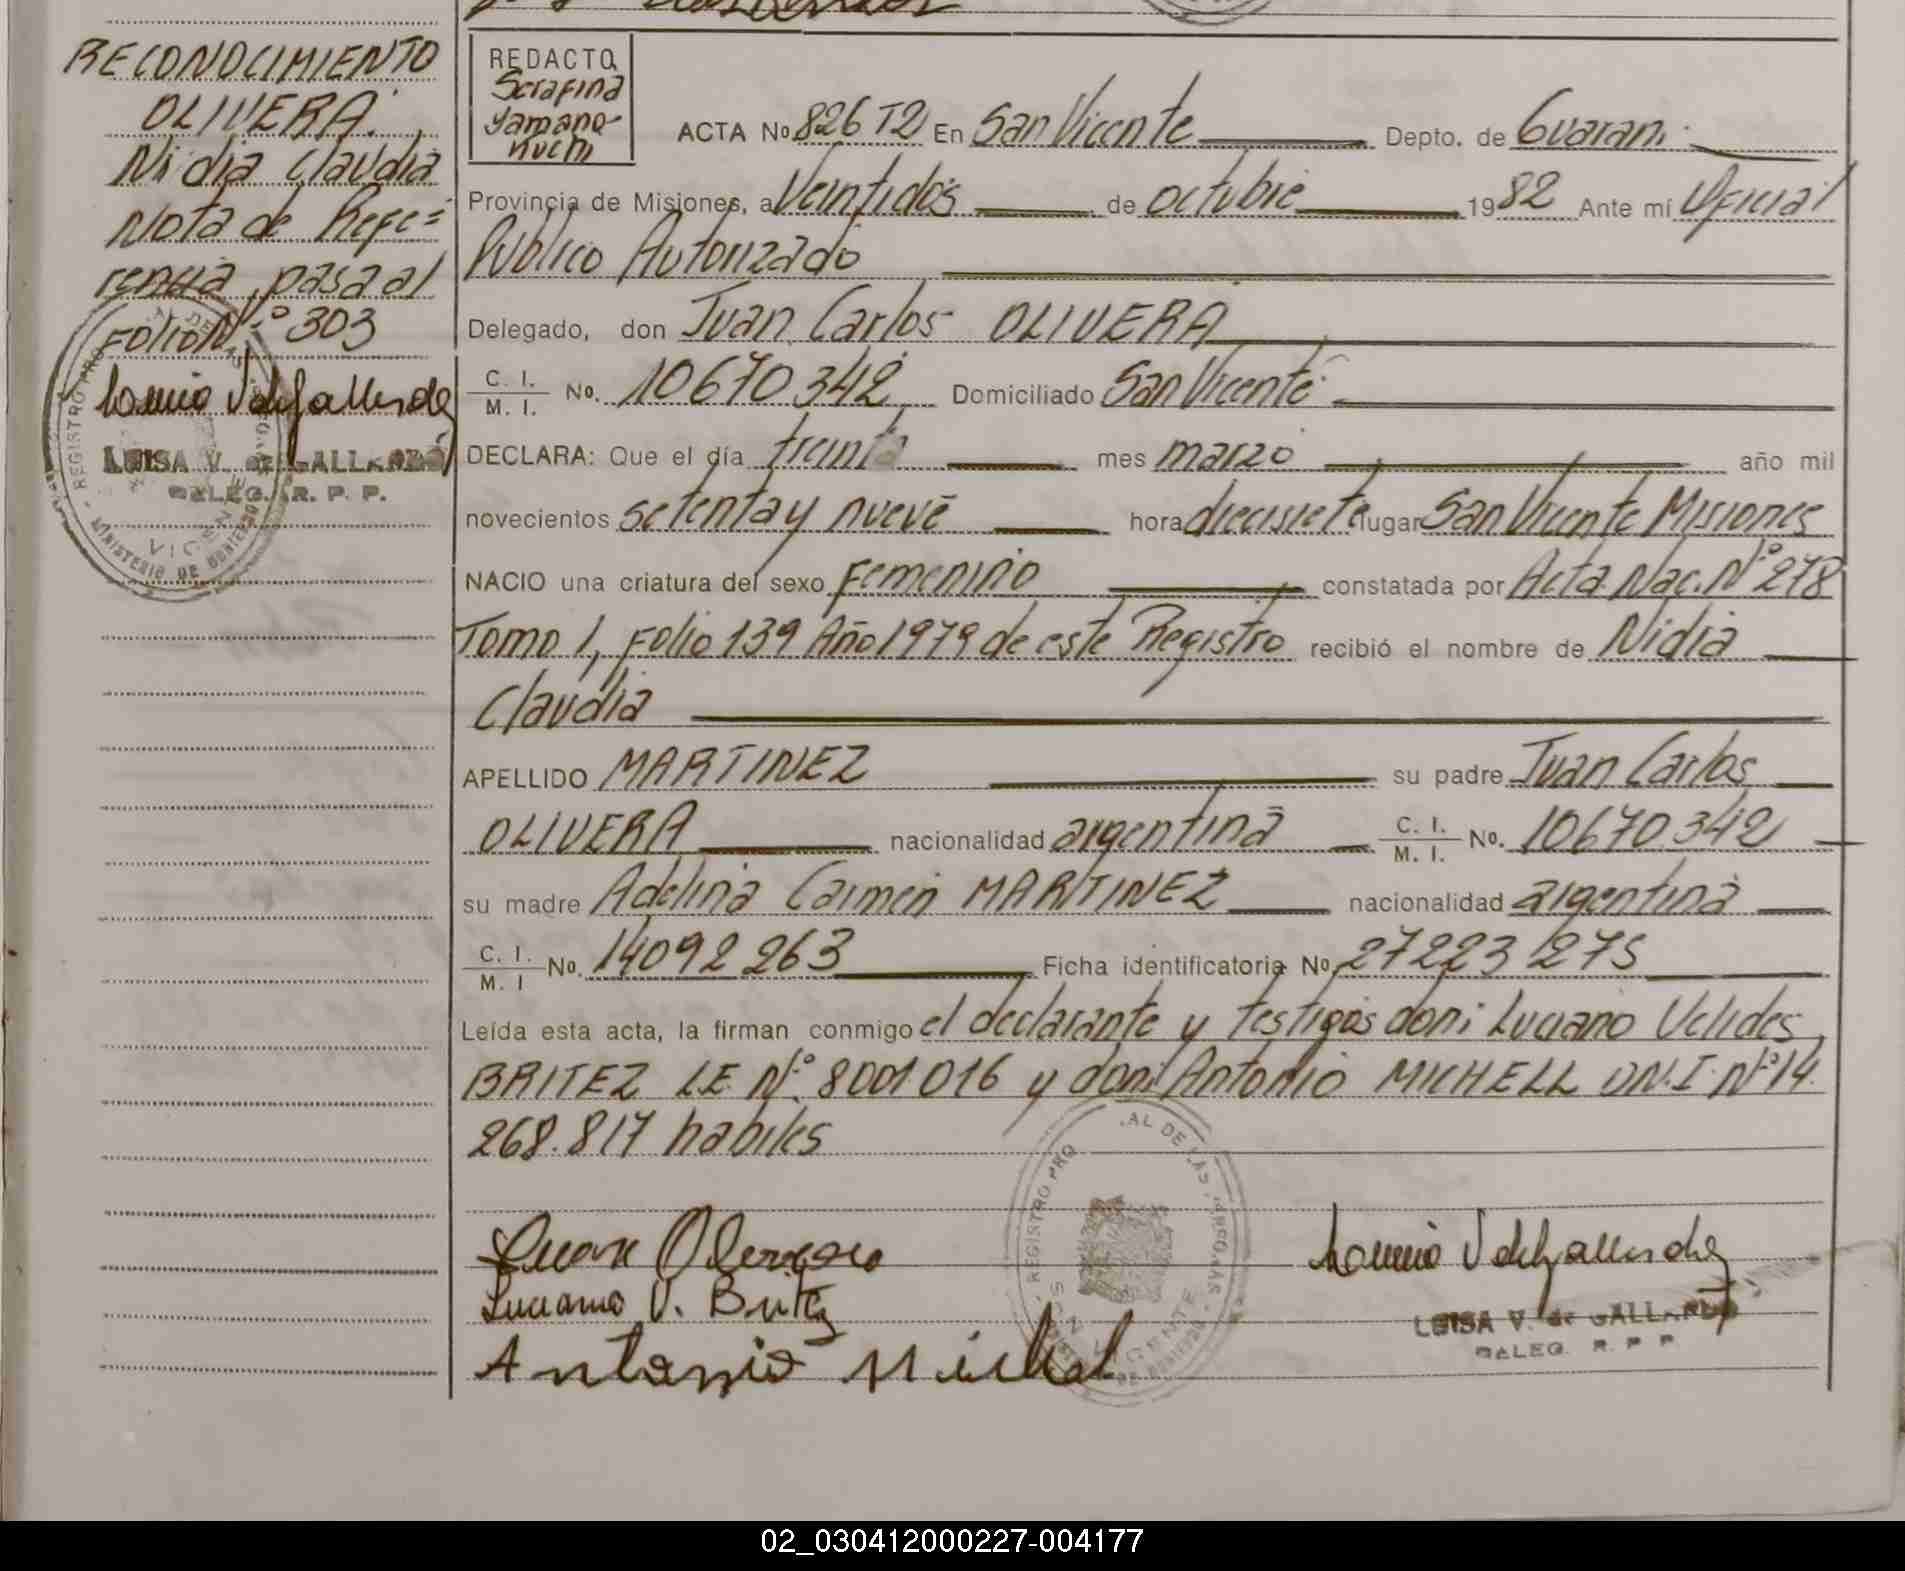 RECONOCIMIENTO
OLIVERA
Nidia Claudia
Nota de Refe=
rencia, pasa al
FOLIO N.º 303
LUISA V. de GALLARDO
DELEG. R. P. P.
REDACTO
Serafina
Yamano-
ACTA No 826 T2 En San Vicente Depto. de Guarani
Provincia de Misiones, a Veintidos de octubre 1982 Ante mí Oficial
Publico Autorizado
Delegado, don Juan Carlos OLIVERA
C. I. / M. I. No. 10670342 Domiciliado San Vicente
DECLARA: Que el día treinta mes marzo año mil
novecientos setenta y nueve hora diecisiete lugar San Vicente Misiones
NACIO una criatura del sexo Femenino constatada por Acta Nac. Nº 278
Tomo 1, Folio 139 Año 1979 de este Registro recibió el nombre de Nidia
Claudia
APELLIDO MARTINEZ su padre Juan Carlos
OLIVERA nacionalidad argentina C. I. / M. I. No. 10670342
su madre Adelina Carmen MARTINEZ nacionalidad argentina
C. I. / M. I No. 14092263 Ficha identificatoria No 27223275
Leída esta acta, la firman conmigo el declarante y testigos don: Luciano Velides
BRITEZ L.E. Nº: 8001.016 y don: Antonio MICHELL D.N.I. Nº 14.
268.817 habiles
Juan
Luciano V. Britez
Antonio Michel
LUISA V. de GALLARDO
DELEG. R. P. P.
02_030412000227-004177